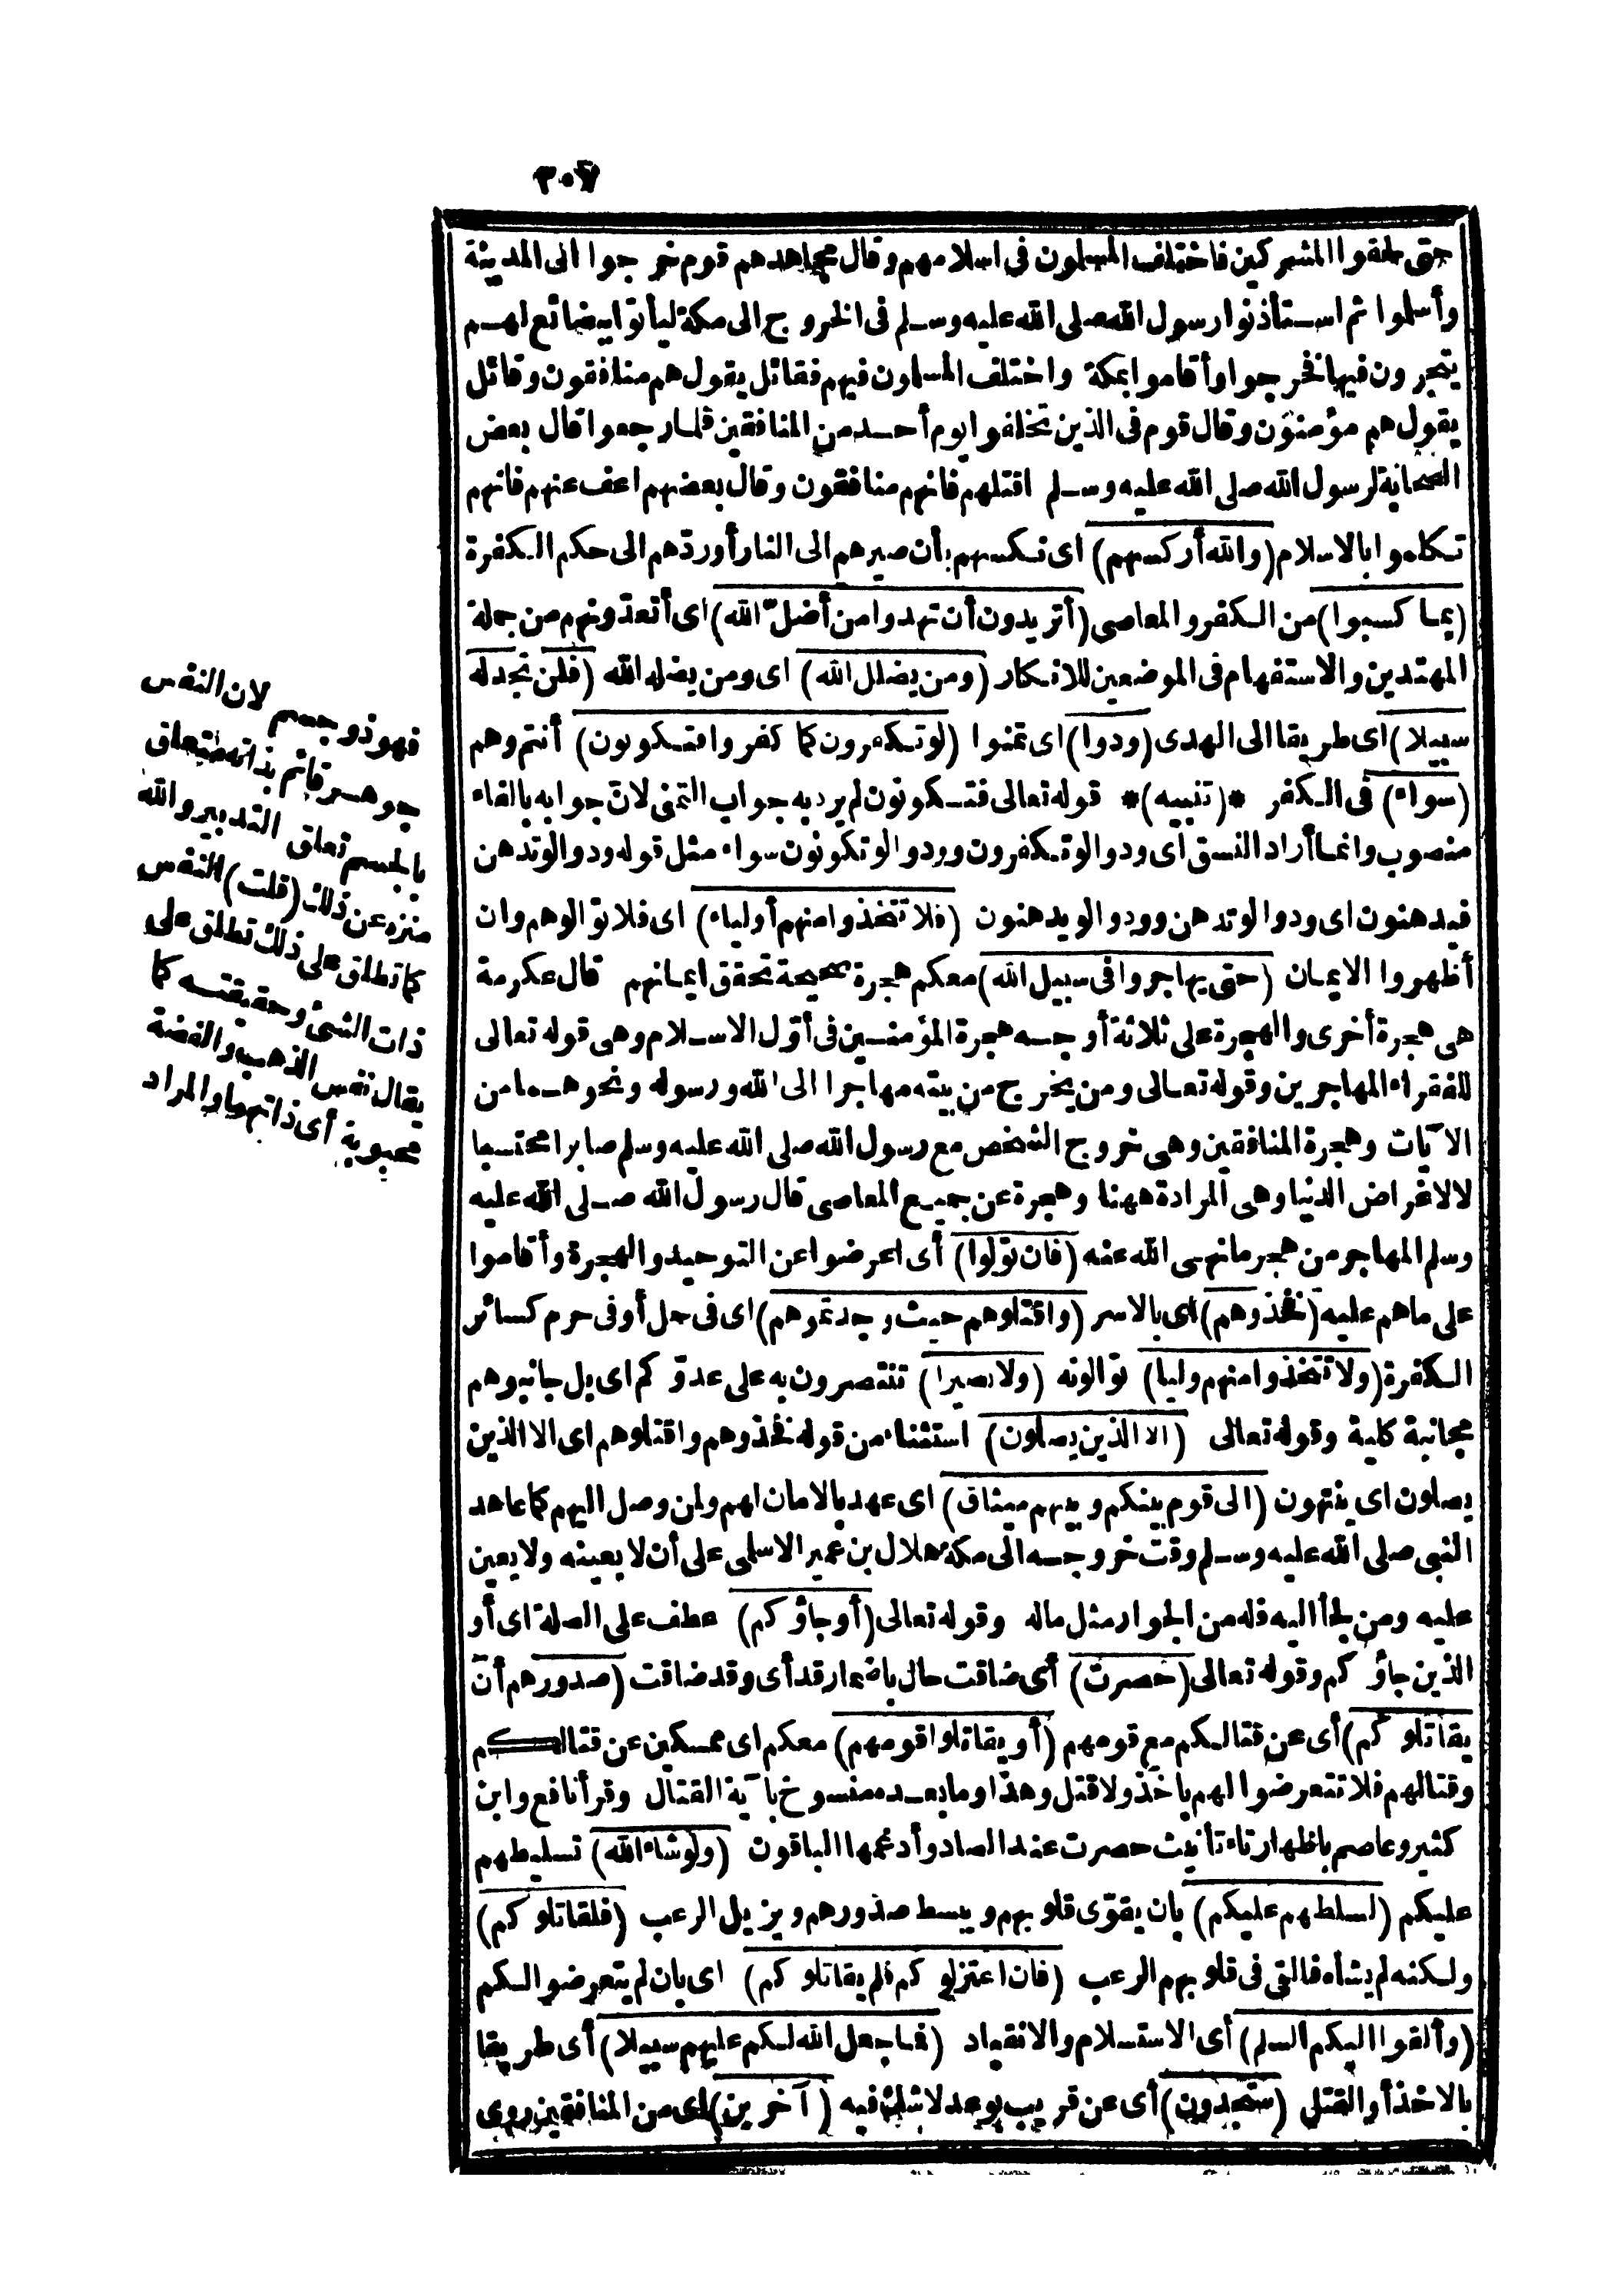 ٣٠٧
حتى لحقوا المشركين فاختلف المسلمون فى اسلامهم وقال مجاهد هم قوم خرجوا الى المدينة
وأسلموا ثم استأذنوا رسول الله صلى الله عليه وسلم فى الخروج الى مكة ليأتوا ببضائع لهم
يتجرون فيها فخرجوا وأقاموا بمكة واختلف المسلمون فيهم فقائل يقول هم منافقون وقائل
يقول هم مؤمنون وقال قوم فى الذين تخلفوا يوم أحد من المنافقين فلما رجعوا قال بعض
الصحابة لرسول الله صلى الله عليه وسلم اقتلهم فانهم منافقون وقال بعضهم اعف عنهم فانهم
تكلموا بالاسلام (والله أركسهم) اى نكسهم بأن صيرهم الى النار أو ردّهم الى حكم الكفرة
(بما كسبوا) من الكفر والمعاصى (أتريدون أن تهدوا من أضلّ الله) اى أتعدّونهم من جملة
المهتدين والاستفهام فى الموضعين للانكار (ومن يضلل الله) اى ومن يضله الله (فلن تجد له
سبيلا) اى طريقا الى الهدى (ودوا) اى تمنوا (لو تكفرون كما كفروا فتكونون) أنتم وهم
(سواء) فى الكفر *(تنبيه)* قوله تعالى فتكونون لم يرد به جواب التمنى لانّ جوابه بالفاء
منصوب وانما أراد النسق اى ودوا لو تكفرون وودوا لو تكونون سواء مثل قوله ودوا لو تدهن
فيدهنون اى ودوا لو تدهن وودوا لو يدهنون (فلا تتخذوا منهم أولياء) اى فلا توالوهم وان
أظهروا الايمان (حتى يهاجروا فى سبيل الله) معكم هجرة صحيحة تحقق ايمانهم قال عكرمة
هى هجرة أخرى والهجرة على ثلاثة أوجه هجرة المؤمنين فى أوّل الاسلام وهى قوله تعالى
للفقراء المهاجرين وقوله تعالى ومن يخرج من بيته مهاجرا الى الله ورسوله ونحوهما من
الآيات وهجرة المنافقين وهى خروج الشخص مع رسول الله صلى الله عليه وسلم صابرا محتسبا
لا لاغراض الدنيا وهى المرادة ههنا وهجرة عن جميع المعاصى قال رسول الله صلى الله عليه
وسلم المهاجر من هجر مانهى الله عنه (فان تولوا) أى اعرضوا عن التوحيد والهجرة وأقاموا
على ماهم عليه (فخذوهم) اى بالاسر (واقتلوهم حيث وجدتموهم) اى فى حل أو فى حرم كسائر
الكفرة (ولا تتخذوا منهم وليا) توالونه (ولا نصيرا) تنتصرون به على عدوّكم اى بل جانبوهم
مجانبة كلية وقوله تعالى (الا الذين يصلون) استثناء من قوله فخذوهم واقتلوهم اى الا الذين
يصلون اى ينتهون (الى قوم بينكم وبينهم ميثاق) اى عهد بالامان لهم ولمن وصل اليهم كما عاهد
النبى صلى الله عليه وسلم وقت خروجه الى مكة هلال بن عمير الاسلمى على أن لا يعينه ولا يعين
عليه ومن لجأ اليه فله من الجوار مثل ماله وقوله تعالى (أو جاؤكم) عطف على الصلة اى أو
الذين جاؤكم وقوله تعالى (حصرت) أى ضاقت حال باضمار قد أى وقد ضاقت (صدورهم أن
يقاتلوكم) أى عن قتالكم مع قومهم (أو يقاتلوا قومهم) معكم اى ممسكين عن قتالكم
وقتالهم فلا تتعرضوا لهم بأخذ ولا قتل وهذا وما بعده منسوخ بآية القتال وقرأ نافع وابن
كثير وعاصم باظهار تاء تأنيث حصرت عند الصاد وأدغمها الباقون (ولو شاء الله) تسليطهم
عليكم (لسلطهم عليكم) بان يقوّى قلوبهم ويبسط صدورهم ويزيل الرعب (فلقاتلوكم)
ولكنه لم يشأه فالقى فى قلوبهم الرعب (فان اعتزلوكم فلم يقاتلوكم) اى بان لم يتعرضوا لكم
(وألقوا اليكم السلم) أى الاستسلام والانقياد (فما جعل الله لكم عليهم سبيلا) أى طريقا
بالاخذ أو القتل (ستجدون) أى عن قريب بوعد لا شك فيه (آخرين) اى من المنافقين روى
فهو ذو جسم لان النفس
جوهر قائم بذاته متعلق
بالجسم تعلق التدبير والله
منزه عن ذلك (قلت) النفس
كما تطلق على ذلك تطلق على
ذات الشئ وحقيقته كما
يقال نفس الذهب والفضة
محبوبة أى ذاتهما والمراد